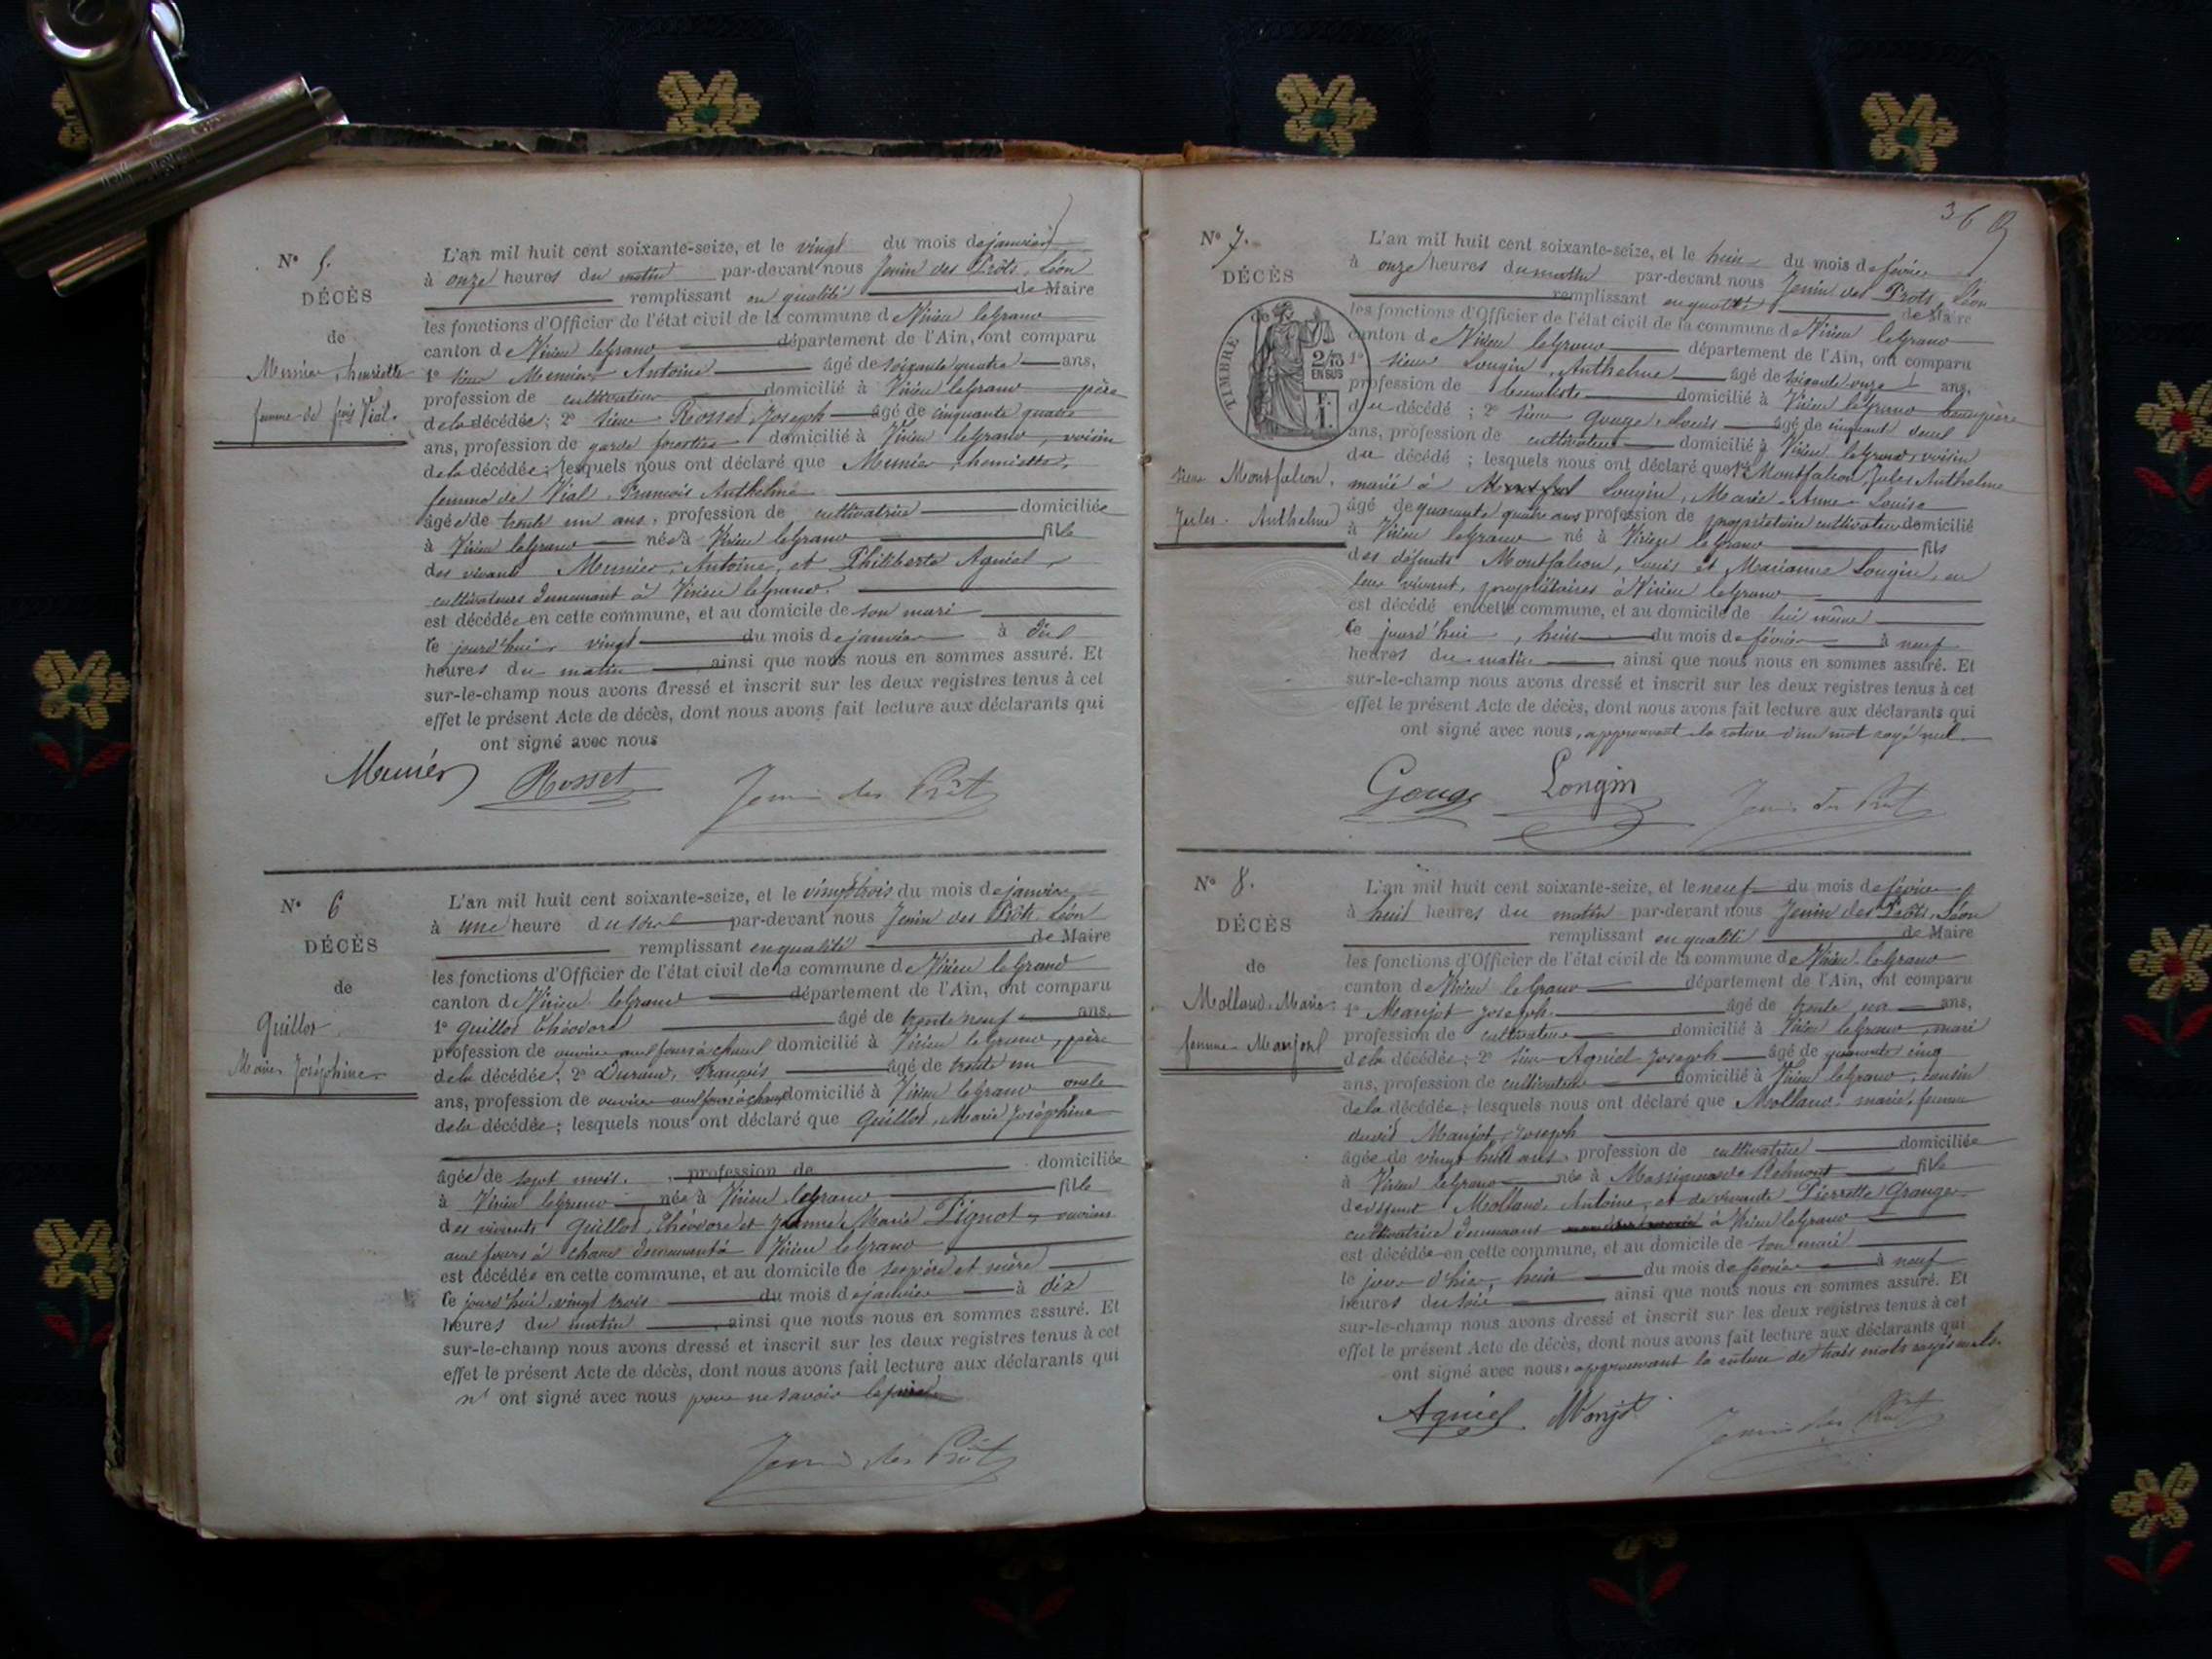 N° 5.
DÉCÈS
de
Meunier, henriette
femme de fçois Vial.
L'an mil huit cent soixante-seize, et le vingt du mois de janvier
à onze heures du matin par-devant nous Jenin des Prôts, Léon
remplissant en qualité de Maire
les fonctions d'Officier de l'état civil de la commune de Virieu legrand
canton de Virieu legrand département de l'Ain, ont comparu
1° sieur Meunier, Antoine âgé de soixante quatre ans,
profession de cultivateur domicilié à Virieu legrand père
de la décédée; 2° sieur Rosset, Joseph âgé de cinquante quatre
ans, profession de garde forestier domicilié à Virieu legrand, voisin
de la décédée; lesquels nous ont déclaré que Meunier, henriette,
femme de Vial, François Anthelme
âgée de trente un ans, profession de cultivatrice domiciliée
à Virieu legrand née à Virieu legrand fille
des vivants Meunier, Antoine, et Philiberte Agniel,
cultivateurs demeurant à Virieu legrand.
est décédée en cette commune, et au domicile de son mari
ce jourd'hui, vingt du mois de janvier à dix
heures du matin ainsi que nous nous en sommes assuré. Et
sur-le-champ nous avons dressé et inscrit sur les deux registres tenus à cet
effet le présent Acte de décès, dont nous avons fait lecture aux déclarants qui
ont signé avec nous
Meunier Rosset Jenin des Prôts
N° 6
DÉCÈS
de
Guillot
Marie Joséphine
L'an mil huit cent soixante-seize, et le vingt trois du mois de janvier
à une heure du soir par-devant nous Jenin des Prôts, Léon
remplissant en qualité de Maire
les fonctions d'Officier de l'état civil de la commune de Virieu legrand
canton de Virieu legrand département de l'Ain, ont comparu
1° Guillot Théodore âgé de trente neuf ans,
profession de ouvrier aux fours à chaux domicilié à Virieu legrand, père
de la décédée; 2° Durand, François âgé de trente un
ans, profession de ouvrier aux fours à chaux domicilié à Virieu legrand oncle
de la décédée; lesquels nous ont déclaré que Guillot, Marie Joséphine
âgée de sept mois, profession de domiciliée
à Virieu legrand née à Virieu legrand fille
des vivants Guillot, Théodore et Jeanne Marie Pignot, ouvriers
aux fours à chaux demeurant à Virieu legrand
est décédée en cette commune, et au domicile de ses père et mère
ce jourd'hui, vingt trois du mois de janvier à dix
heures du matin, ainsi que nous nous en sommes assuré. Et
sur-le-champ nous avons dressé et inscrit sur les deux registres tenus à cet
effet le présent Acte de décès, dont nous avons fait lecture aux déclarants qui
n' ont signé avec nous pour ne savoir le faire
Jenin des Prôts
369
N° 7.
DÉCÈS
de
TIMBRE
2/10
EN SUS
F.
1.
sieur Montfalcon,
Jules Anthelme
L'an mil huit cent soixante-seize, et le huit du mois de février
à onze heures du matin par-devant nous Jenin des Prôts, Léon
remplissant en qualité de Maire
les fonctions d'Officier de l'état civil de la commune de Virieu legrand
canton de Virieu legrand département de l'Ain, ont comparu
1° sieur Longin, Anthelme âgé de soixante onze ans,
profession de domicilié à Virieu legrand beau père
du décédé; 2° sieur Gouge, Louis âgé de cinquante deux
ans, profession de cultivateur domicilié à Virieu legrand, voisin
du décédé; lesquels nous ont déclaré que Sr Montfalcon, Jules Anthelme
marié à Longin, Marie-Anne-Louise
âgé de quarante quatre ans profession de propriétaire cultivateur domicilié
à Virieu legrand né à Virieu legrand fils
des défunts Montfalcon, Louis et Marianne Longin, en
leur vivant, propriétaires à Virieu legrand
est décédé en cette commune, et au domicile de lui même
ce jourd'hui, huit du mois de février à neuf
heures du matin, ainsi que nous nous en sommes assuré. Et
sur-le-champ nous avons dressé et inscrit sur les deux registres tenus à cet
effet le présent Acte de décès, dont nous avons fait lecture aux déclarants qui
ont signé avec nous, approuvant la rature d'un mot rayé nul.
Gouge Longin Jenin des Prôts
N° 8.
DÉCÈS
de
Molland, Marie
femme Manjot
L'an mil huit cent soixante-seize, et le neuf du mois de février
à huit heures du matin par-devant nous Jenin des Prôts, Léon
remplissant en qualité de Maire
les fonctions d'Officier de l'état civil de la commune de Virieu legrand
canton de Virieu legrand département de l'Ain, ont comparu
1° Manjot Joseph âgé de trente un ans,
profession de cultivateur domicilié à Virieu legrand, mari
de la décédée; 2° sieur Agniel Joseph âgé de quarante cinq
ans, profession de cultivateur domicilié à Virieu legrand, cousin
de la décédée; lesquels nous ont déclaré que Molland marie, femme
dudit Manjot, Joseph
âgée de vingt huit ans, profession de cultivatrice domiciliée
à Virieu legrand née à Massignieu de Belmont fille
de défunt Molland, Antoine, et de vivante Pierrette Grange
cultivatrice demeurant à Virieu legrand
est décédée en cette commune, et au domicile de son mari
le jour d'hier, huit du mois de février à neuf
heures du soir ainsi que nous nous en sommes assuré. Et
sur-le-champ nous avons dressé et inscrit sur les deux registres tenus à cet
effet le présent Acte de décès, dont nous avons fait lecture aux déclarants qui
ont signé avec nous, approuvant la rature de trois mots rayés nuls.
Agniel Manjot Jenin des Prôts